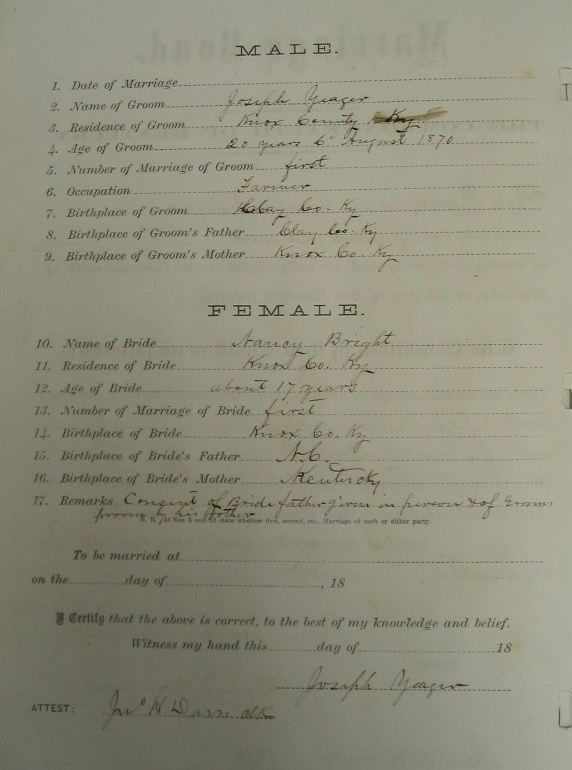 MALE.
1. Date of Marriage
2. Name of Groom Joseph Yeager
3. Residence of Groom Knox County Ky
4. Age of Groom 20 years 6th August 1870
5. Number of Marriage of Groom first
6. Occupation Farmer
7. Birthplace of Groom Clay Co. Ky
8. Birthplace of Groom's Father Clay Co. Ky
9. Birthplace of Groom's Mother Knox Co. Ky
FEMALE.
10. Name of Bride Nancy Bright
11. Residence of Bride Knox Co. Ky
12. Age of Bride about 17 years
13. Number of Marriage of Bride first
14. Birthplace of Bride Knox Co. Ky
15. Birthplace of Bride's Father N.C.
16. Birthplace of Bride's Mother Kentucky
17. Remarks Consent of Bride father given in person & of Grooms
proven by his
N. B. At Nos. 5 and 13 state whether first, second, etc., Marriage of each or either party.
To be married at
on the day of , 18
I Certify that the above is correct, to the best of my knowledge and belief.
Witness my hand this day of 18
Joseph Yager
ATTEST: Jno H Darn clk